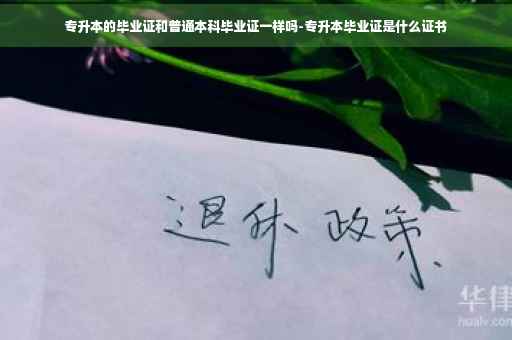 专升本的毕业证和普通本科毕业证一样吗-专升本毕业证是什么证书
退休 政策
华律
hualv.com